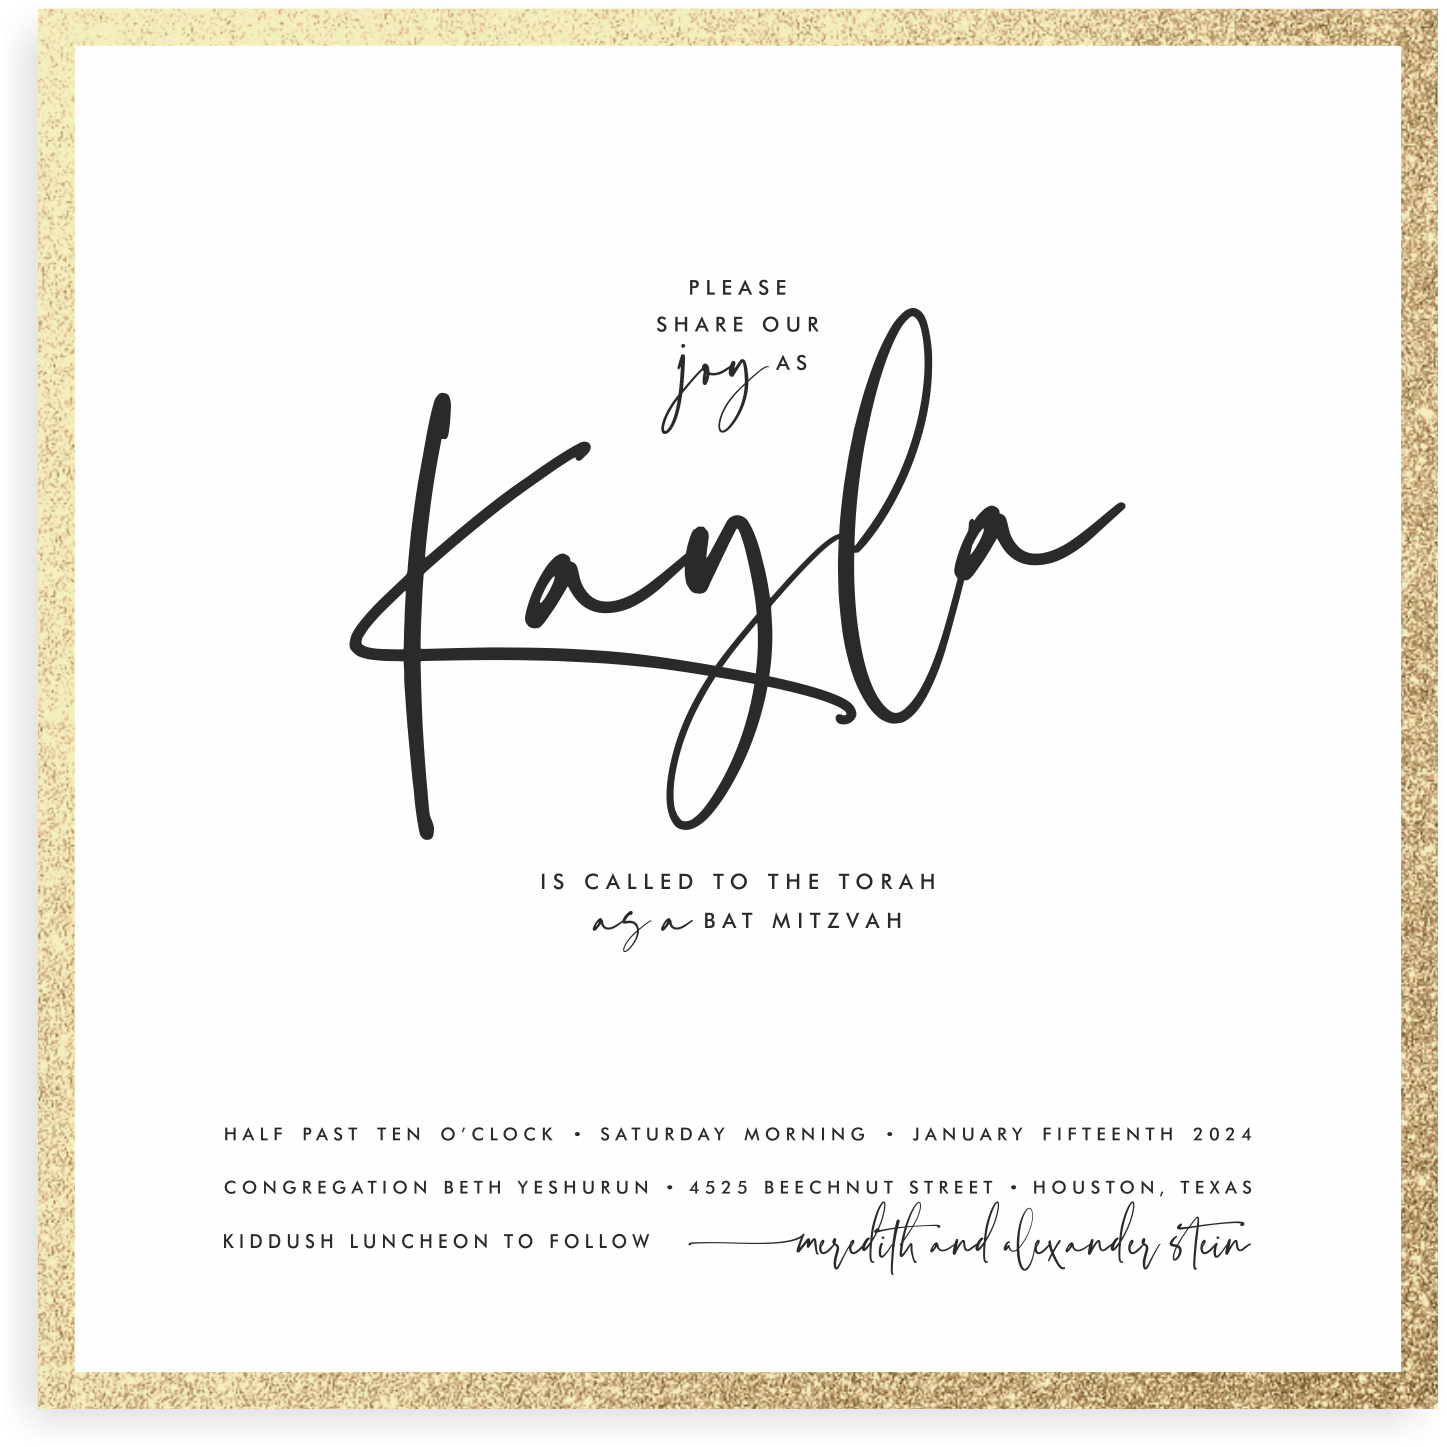 PLEASE
SHARE OUR
joy AS
Kayla
IS CALLED TO THE TORAH
as a BAT MITZVAH
HALF PAST TEN O’CLOCK • SATURDAY MORNING • JANUARY FIFTEENTH 2024
CONGREGATION BETH YESHURUN • 4525 BEECHNUT STREET • HOUSTON, TEXAS
KIDDUSH LUNCHEON TO FOLLOW meredith and alexander stein